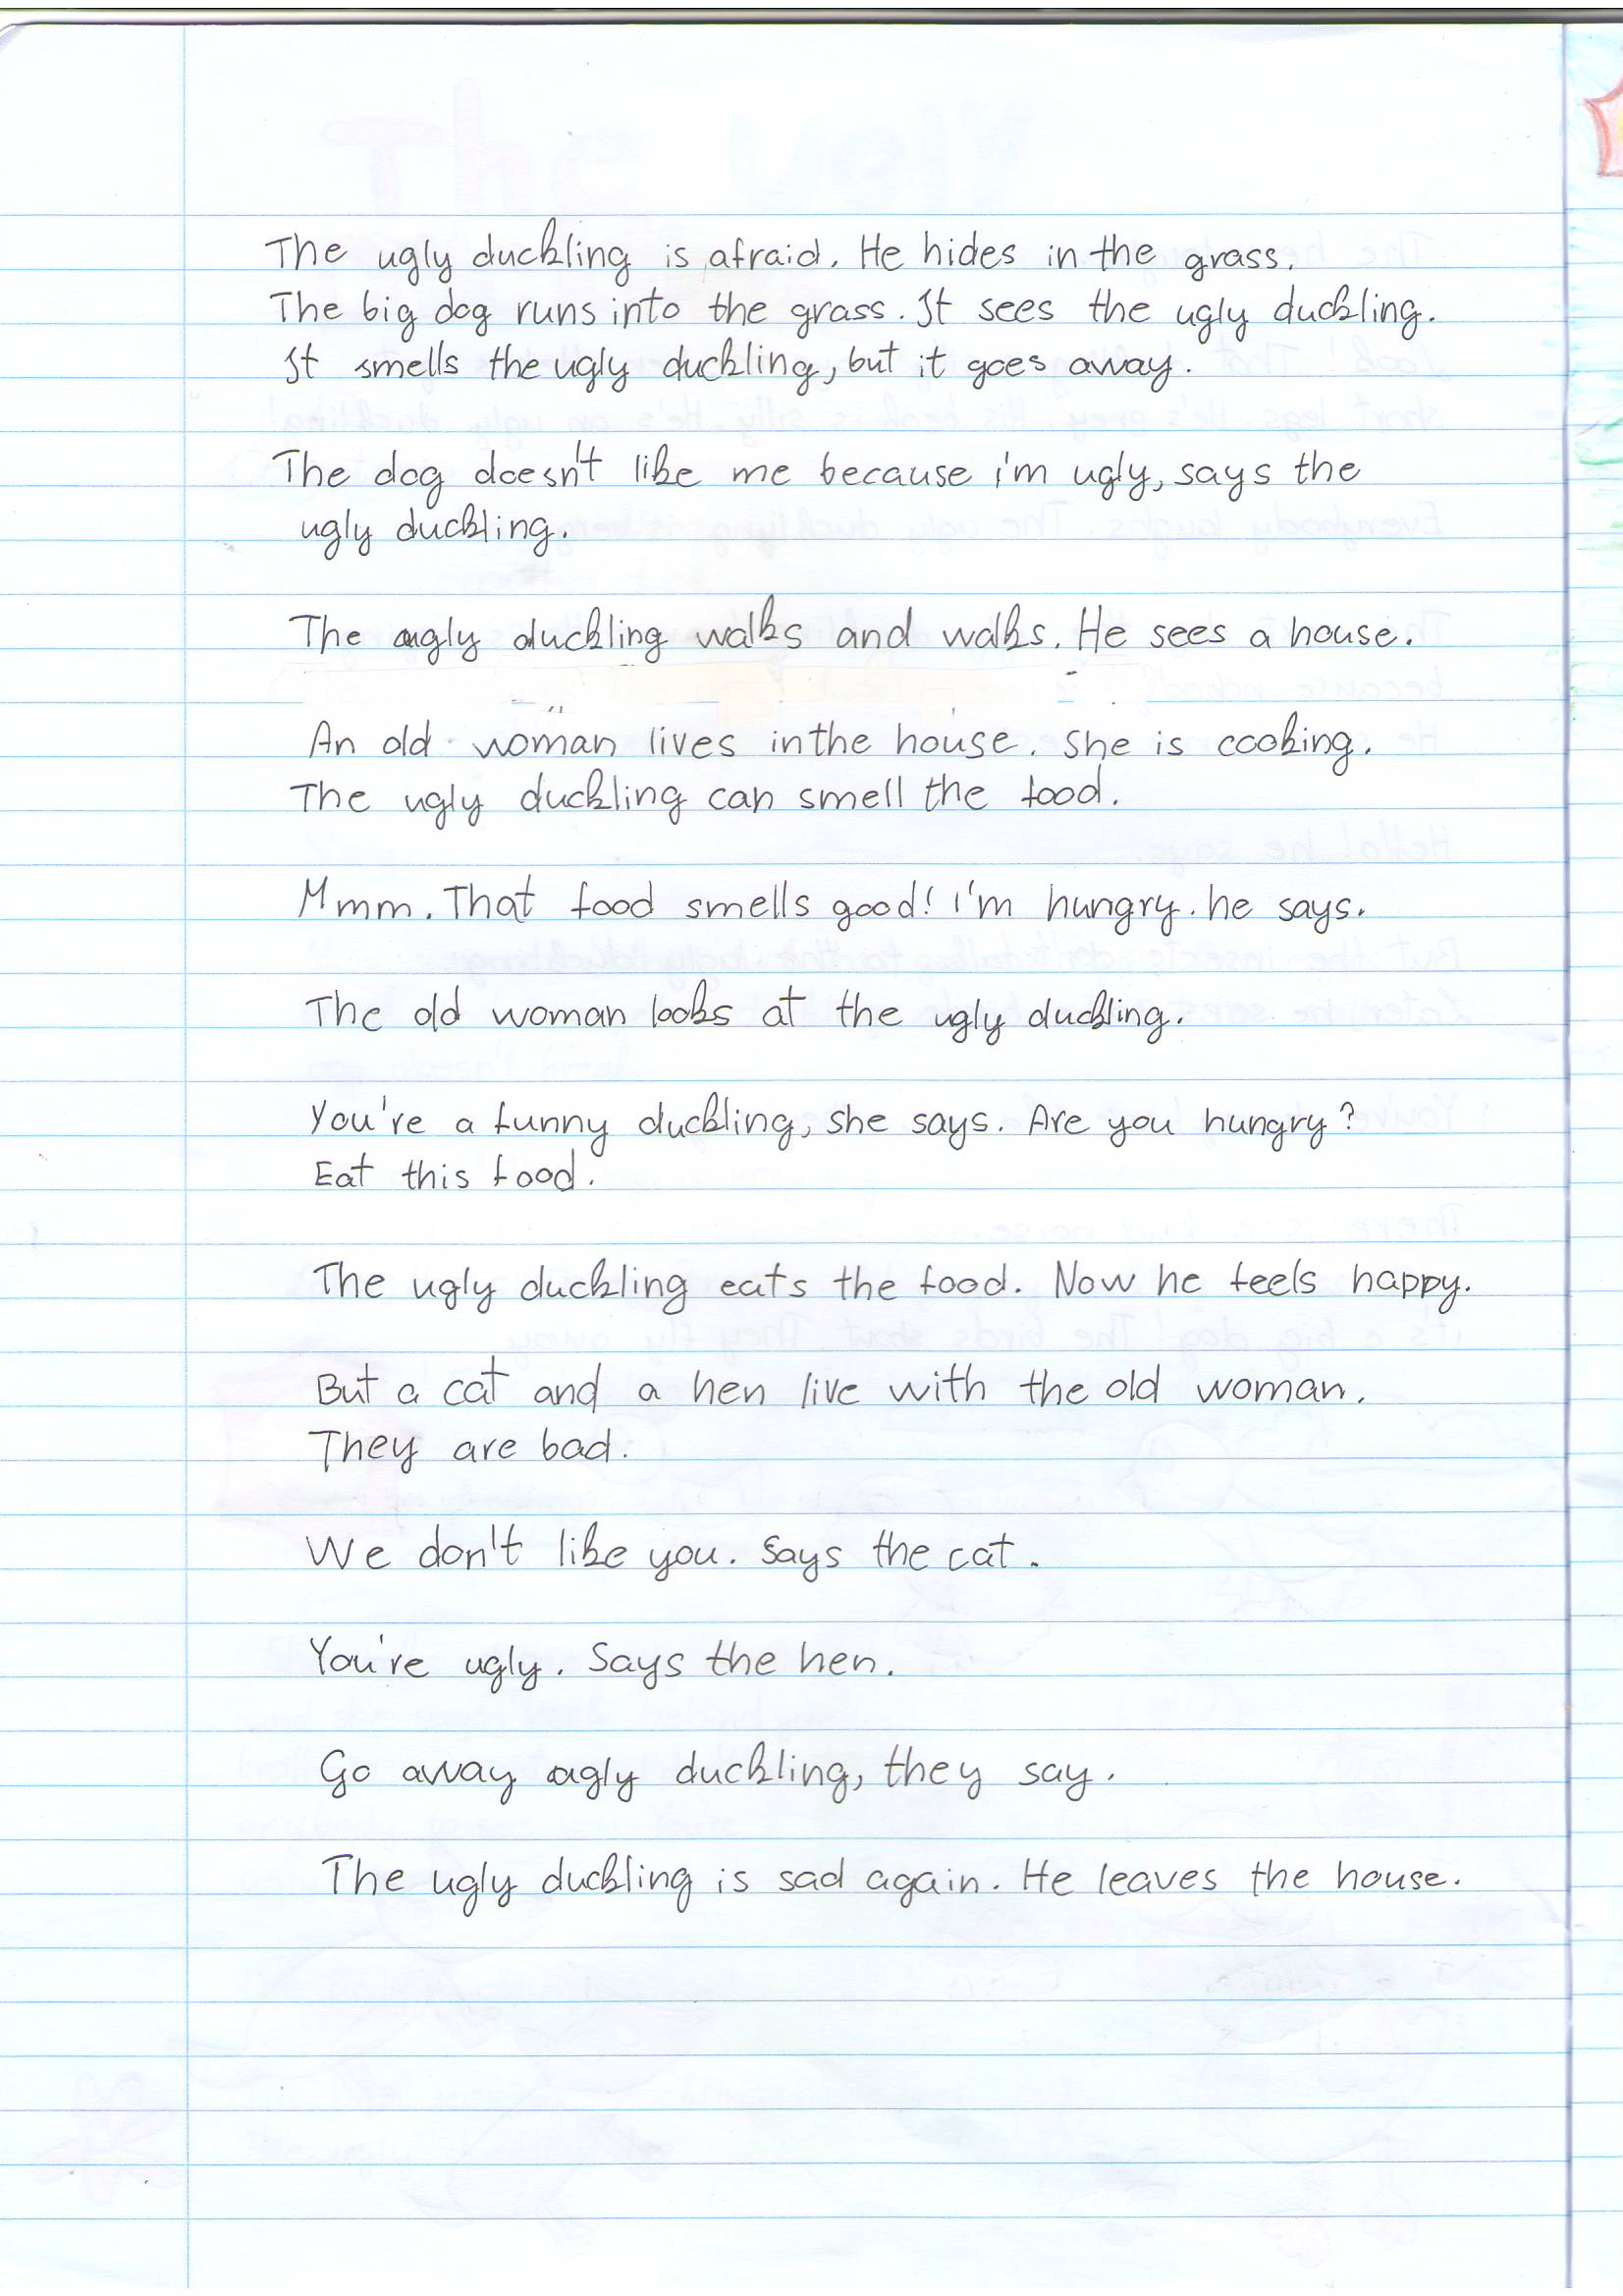 The ugly duckling is afraid. He hides in the grass.
The big dog runs into the grass. It sees the ugly duckling.
It smells the ugly duckling, but it goes away.
The dog doesn't like me because i'm ugly, says the
ugly duckling.
The ugly duckling walks and walks. He sees a house.
An old woman lives in the house. She is cooking.
The ugly duckling can smell the food.
Mmm. That food smells good! I'm hungry. he says.
The old woman looks at the ugly duckling.
You're a funny duckling, she says. Are you hungry?
Eat this food.
The ugly duckling eats the food. Now he feels happy.
But a cat and a hen live with the old woman.
They are bad.
We don't like you. Says the cat.
You're ugly. Says the hen.
Go away ugly duckling, they say.
The ugly duckling is sad again. He leaves the house.